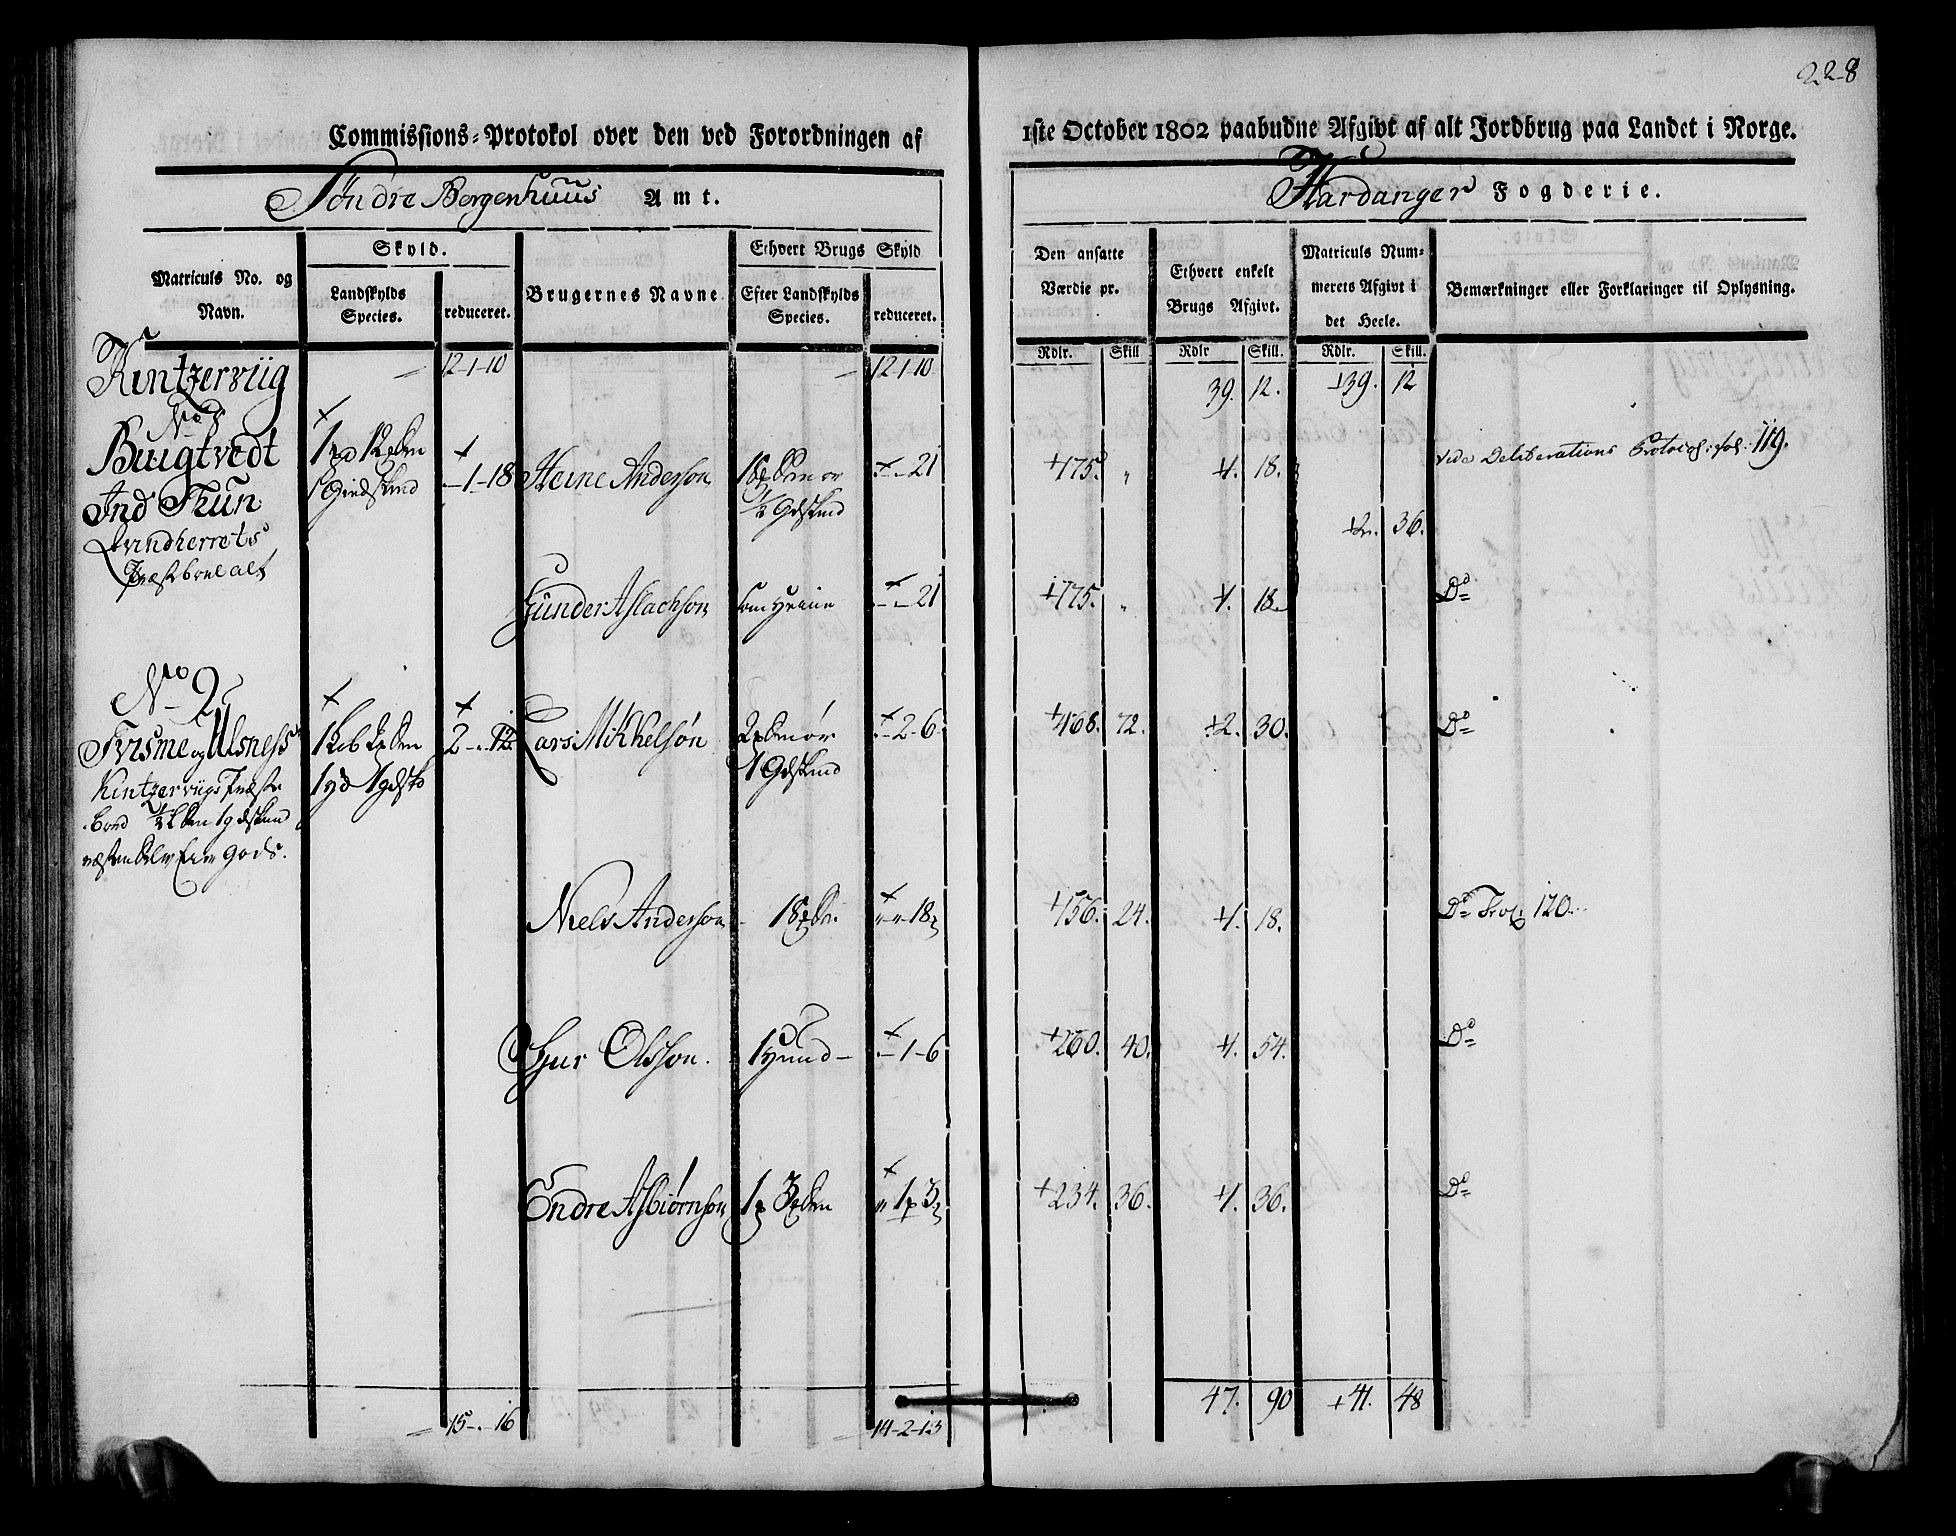 228
Commissions-Protokol over den ved Forordningen af 1ste October 1802 paabudne Afgivt af alt Jordbrug paa Landet i Norge.
Søndre Bergenhuus Amt. Hardanger Fogderie.
Matriculs No. og Navn.
Skyld.
Landskylds Species.
reduceret.
Brugernes Navne
Ethvert Brugs Skyld
Efter Landskylds Species.
reduceret.
Den ansatte Værdie pr.
Ethvert enkelt Brugs Afgivt.
Matriculs Nummerets Afgivt i det Heele.
Bemærkninger eller Forklaringer til Oplysning.
Rdlr. Skill Rdlr Skill. Rdlr. Skill.
Kintzerviig 12-1-10 12-1-10 39. 12. 39. 12
Bugtvedt
Ind Thun
Qvindherrets
1-18 Heine Anderson 21 175. " 1. 18. vide Deliberations Protocol: fol: 119.
2. 36.
Gunder Aslachson som Heine 21 175. " 1. 18. Do
No 2
Frisme og Ulsness
Kintzerviigs Præste
2-.-12 Lars Mikkelsøn 2-6 468. 72. 2. 30. Do
Gods.
Niels Anderson 18 156. 24. 1. 18. Do Prot: 120.
Siur Olsson. 1 Huud 1-6 260. 40. 1. 54. Do
Endre Asbiørnson 1 3 234. 36. 1. 36. Do
15-.-16 14-2-13 47. 90 41. 48